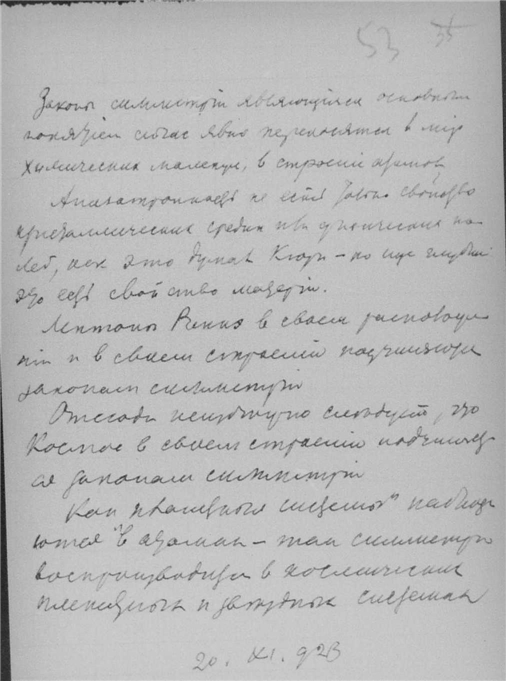 53 35
Законы симметрій являющіяся основным
понятіем сейчас явно переносятся в мір
химических молекул, в строеніи атомов
не есть только свойство
кристаллических средин или физических по-
лей, как это думал Кюри – но еще глубже
это есть свойство матеріи.
в своем располож-
ніи и в своем строеніи подчиняются
законам симметріи
Отсюда неизбежно следует, что
Космос в своем строеніи подчиняет-
ся законам симметріи
Как планетныя системы наблюда-
ются в атомах – так симметрія
воспроизводится в космических
планетных и звездных системах
20. XI. 923